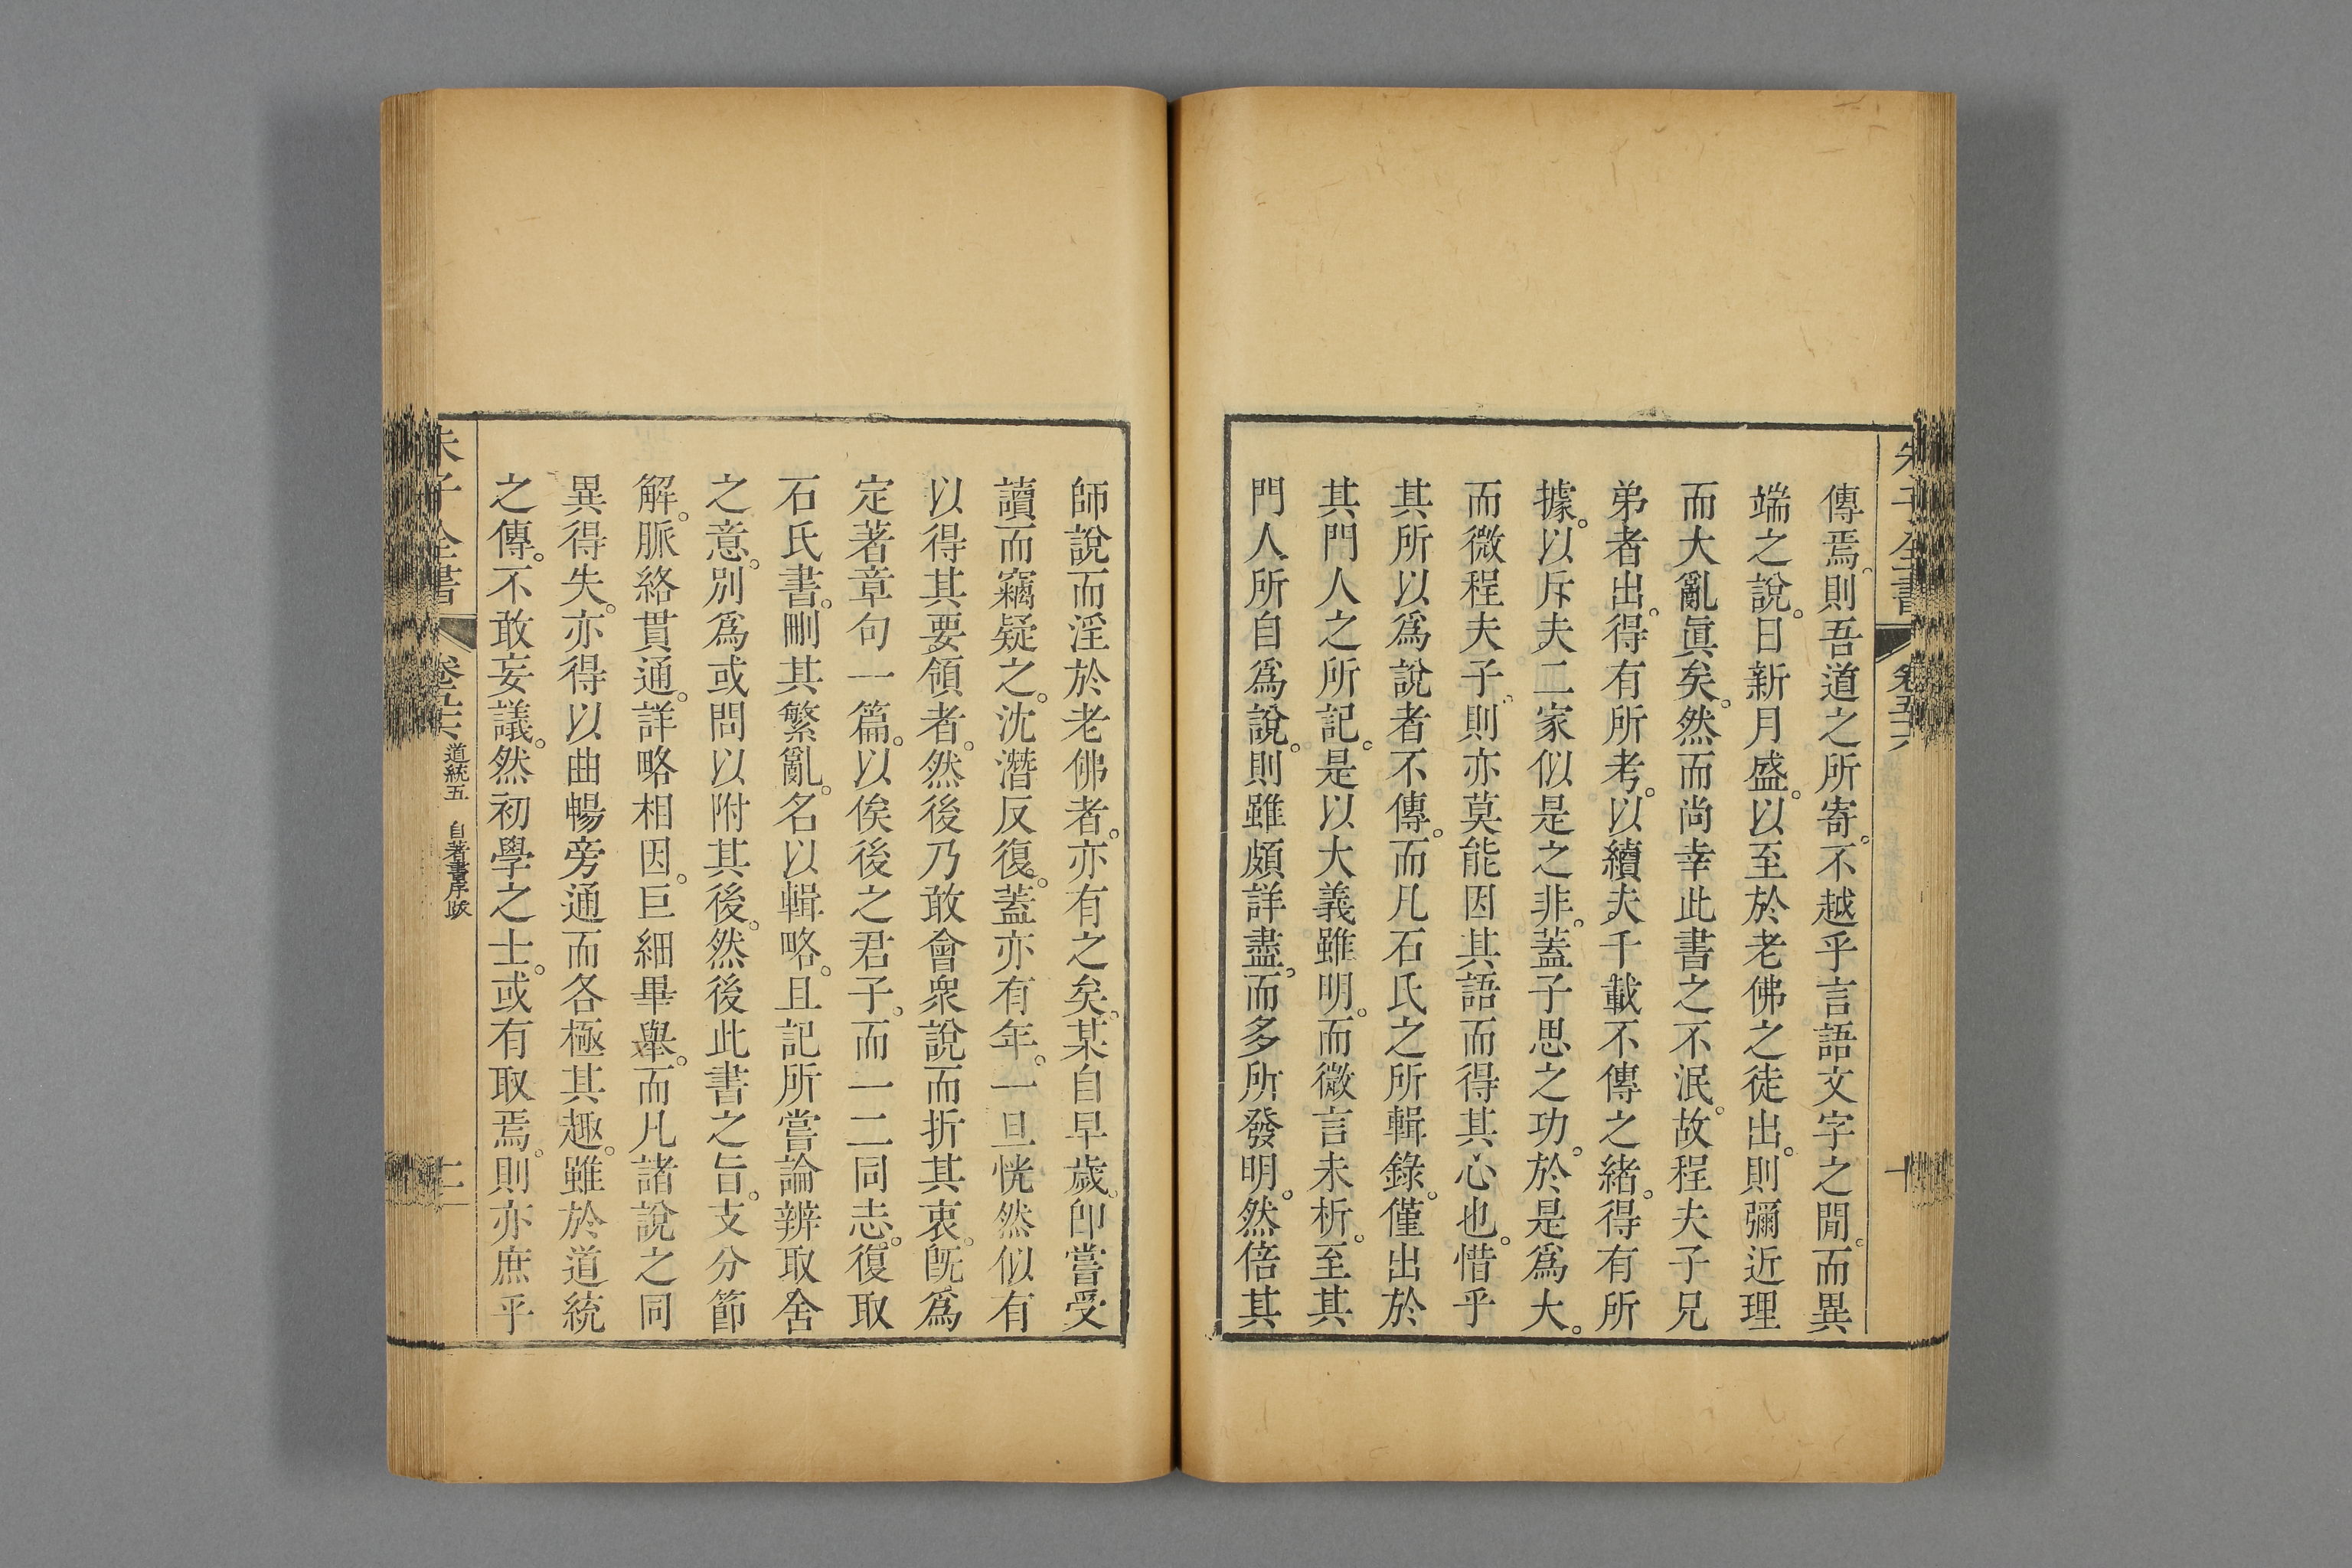 朱子全書 卷五十六 十
傳焉。則吾道之所寄。不越乎言語文字之閒。而異
端之說。日新月盛。以至於老佛之徒出。則彌近理
而大亂眞矣。然而尚幸此書之不泯。故程夫子兄
弟者出。得有所考。以續夫千載不傳之緒。得有所
據。以斥夫二家似是之非。蓋子思之功。於是爲大。
而微程夫子。則亦莫能因其語而得其心也。惜乎
其所以爲說者不傳。而凡石氏之所輯錄。僅出於
其門人之所記。是以大義雖明。而微言未析。至其
門人所自爲說。則雖頗詳盡。而多所發明。然倍其
師說而淫於老佛者。亦有之矣。某自早歲。卽嘗受
讀而竊疑之。沈潛反復。蓋亦有年。一旦恍然似有
以得其要領者。然後乃敢會衆說而折其衷。旣爲
定著章句一篇。以俟後之君子。而一二同志。復取
石氏書。刪其繁亂。名以輯略。且記所嘗論辨取舍
之意。別爲或問以附其後。然後此書之旨。支分節
解。脈絡貫通。詳略相因。巨細畢舉。而凡諸說之同
異得失。亦得以曲暢旁通而各極其趣。雖於道統
之傳。不敢妄議。然初學之士。或有取焉。則亦庶乎
朱子全書 卷五十六 道統五 自著書序跋